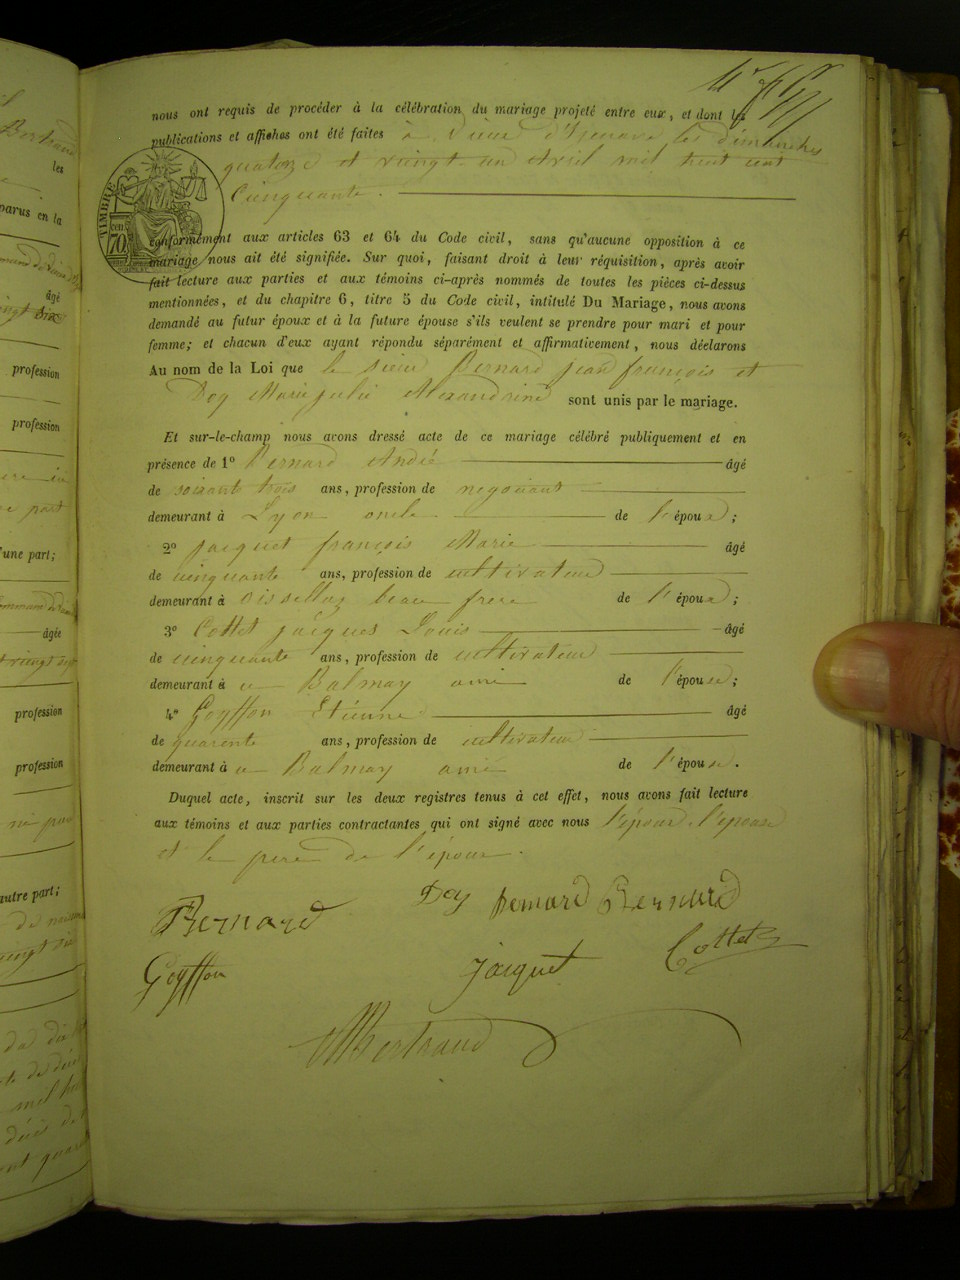 nous ont requis de procéder à la célébration du mariage projeté entre eux, et dont les
publications et affiches ont été faites à Vieu d'Izenave les dimanches
quatorze et vingt un avril mil huit cent
Cinquante.
conformément aux articles 63 et 64 du Code civil, sans qu'aucune opposition à ce
mariage nous ait été signifiée. Sur quoi, faisant droit à leur réquisition, après avoir
fait lecture aux parties et aux témoins ci-après nommés de toutes les pièces ci-dessus
mentionnées, et du chapitre 6, titre 5 du Code civil, intitulé Du Mariage, nous avons
demandé au futur époux et à la future épouse s'ils veulent se prendre pour mari et pour
femme; et chacun d'eux ayant répondu séparément et affirmativement, nous déclarons
Au nom de la Loi que le sieur Bernard jean françois et
Dey Marie julie Alexandrine sont unis par le mariage.
Et sur-le-champ nous avons dressé acte de ce mariage célébré publiquement et en
présence de 1º Bernard André âgé
de soixante trois ans, profession de negociant
demeurant à Lyon oncle de l'époux;
2º jacquet françois Marie âgé
de cinquante ans, profession de cultivateur
demeurant à beau frere de l'époux;
3º Cottet jacques Louis âgé
de cinquante ans, profession de cultivateur
demeurant à Balmay ami de l'épouse;
4º Goyffon Etienne âgé
de quarente ans, profession de cultivateur
demeurant à Balmay ami de l'épouse.
Duquel acte, inscrit sur les deux registres tenus à cet effet, nous avons fait lecture
aux témoins et aux parties contractantes qui ont signé avec nous l'époux, l'épouse
et le pere de l'époux.
Dey Bernard Bernard
Bernard
Goyffon jacquet Cottet
Bertrand
TIMBRE
70
Bertrand
les
parus en la
âgé
profession
profession
'une part;
âgée
profession
profession
autre part;